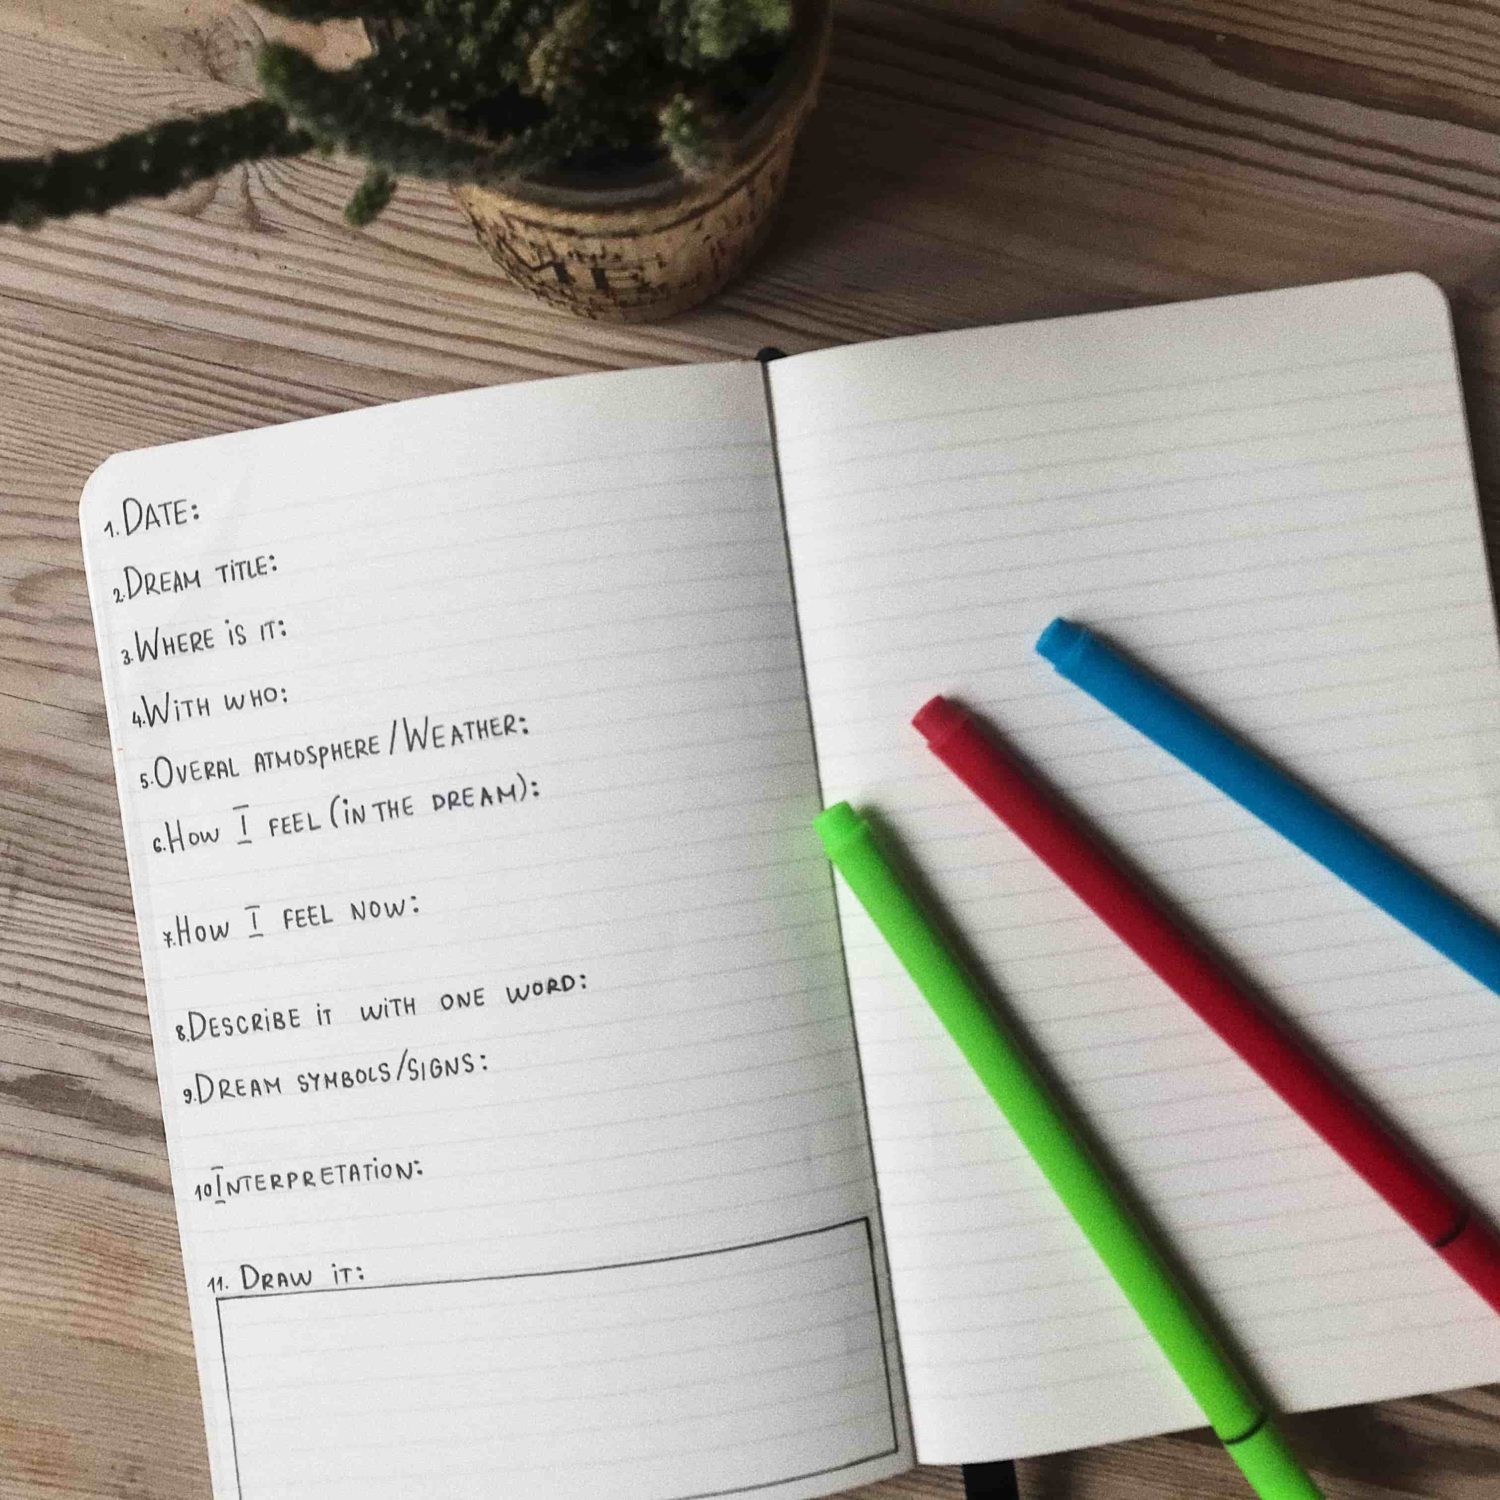 1. DATE:
2. DREAM TITLE:
3. WHERE IS IT:
4. WITH WHO:
5. OVERAL ATMOSPHERE/WEATHER:
6. HOW I FEEL (IN THE DREAM):
7. HOW I FEEL NOW:
8. DESCRIBE IT WITH ONE WORD:
9. DREAM SYMBOLS/SIGNS:
10 INTERPRETATION:
11. DRAW IT: